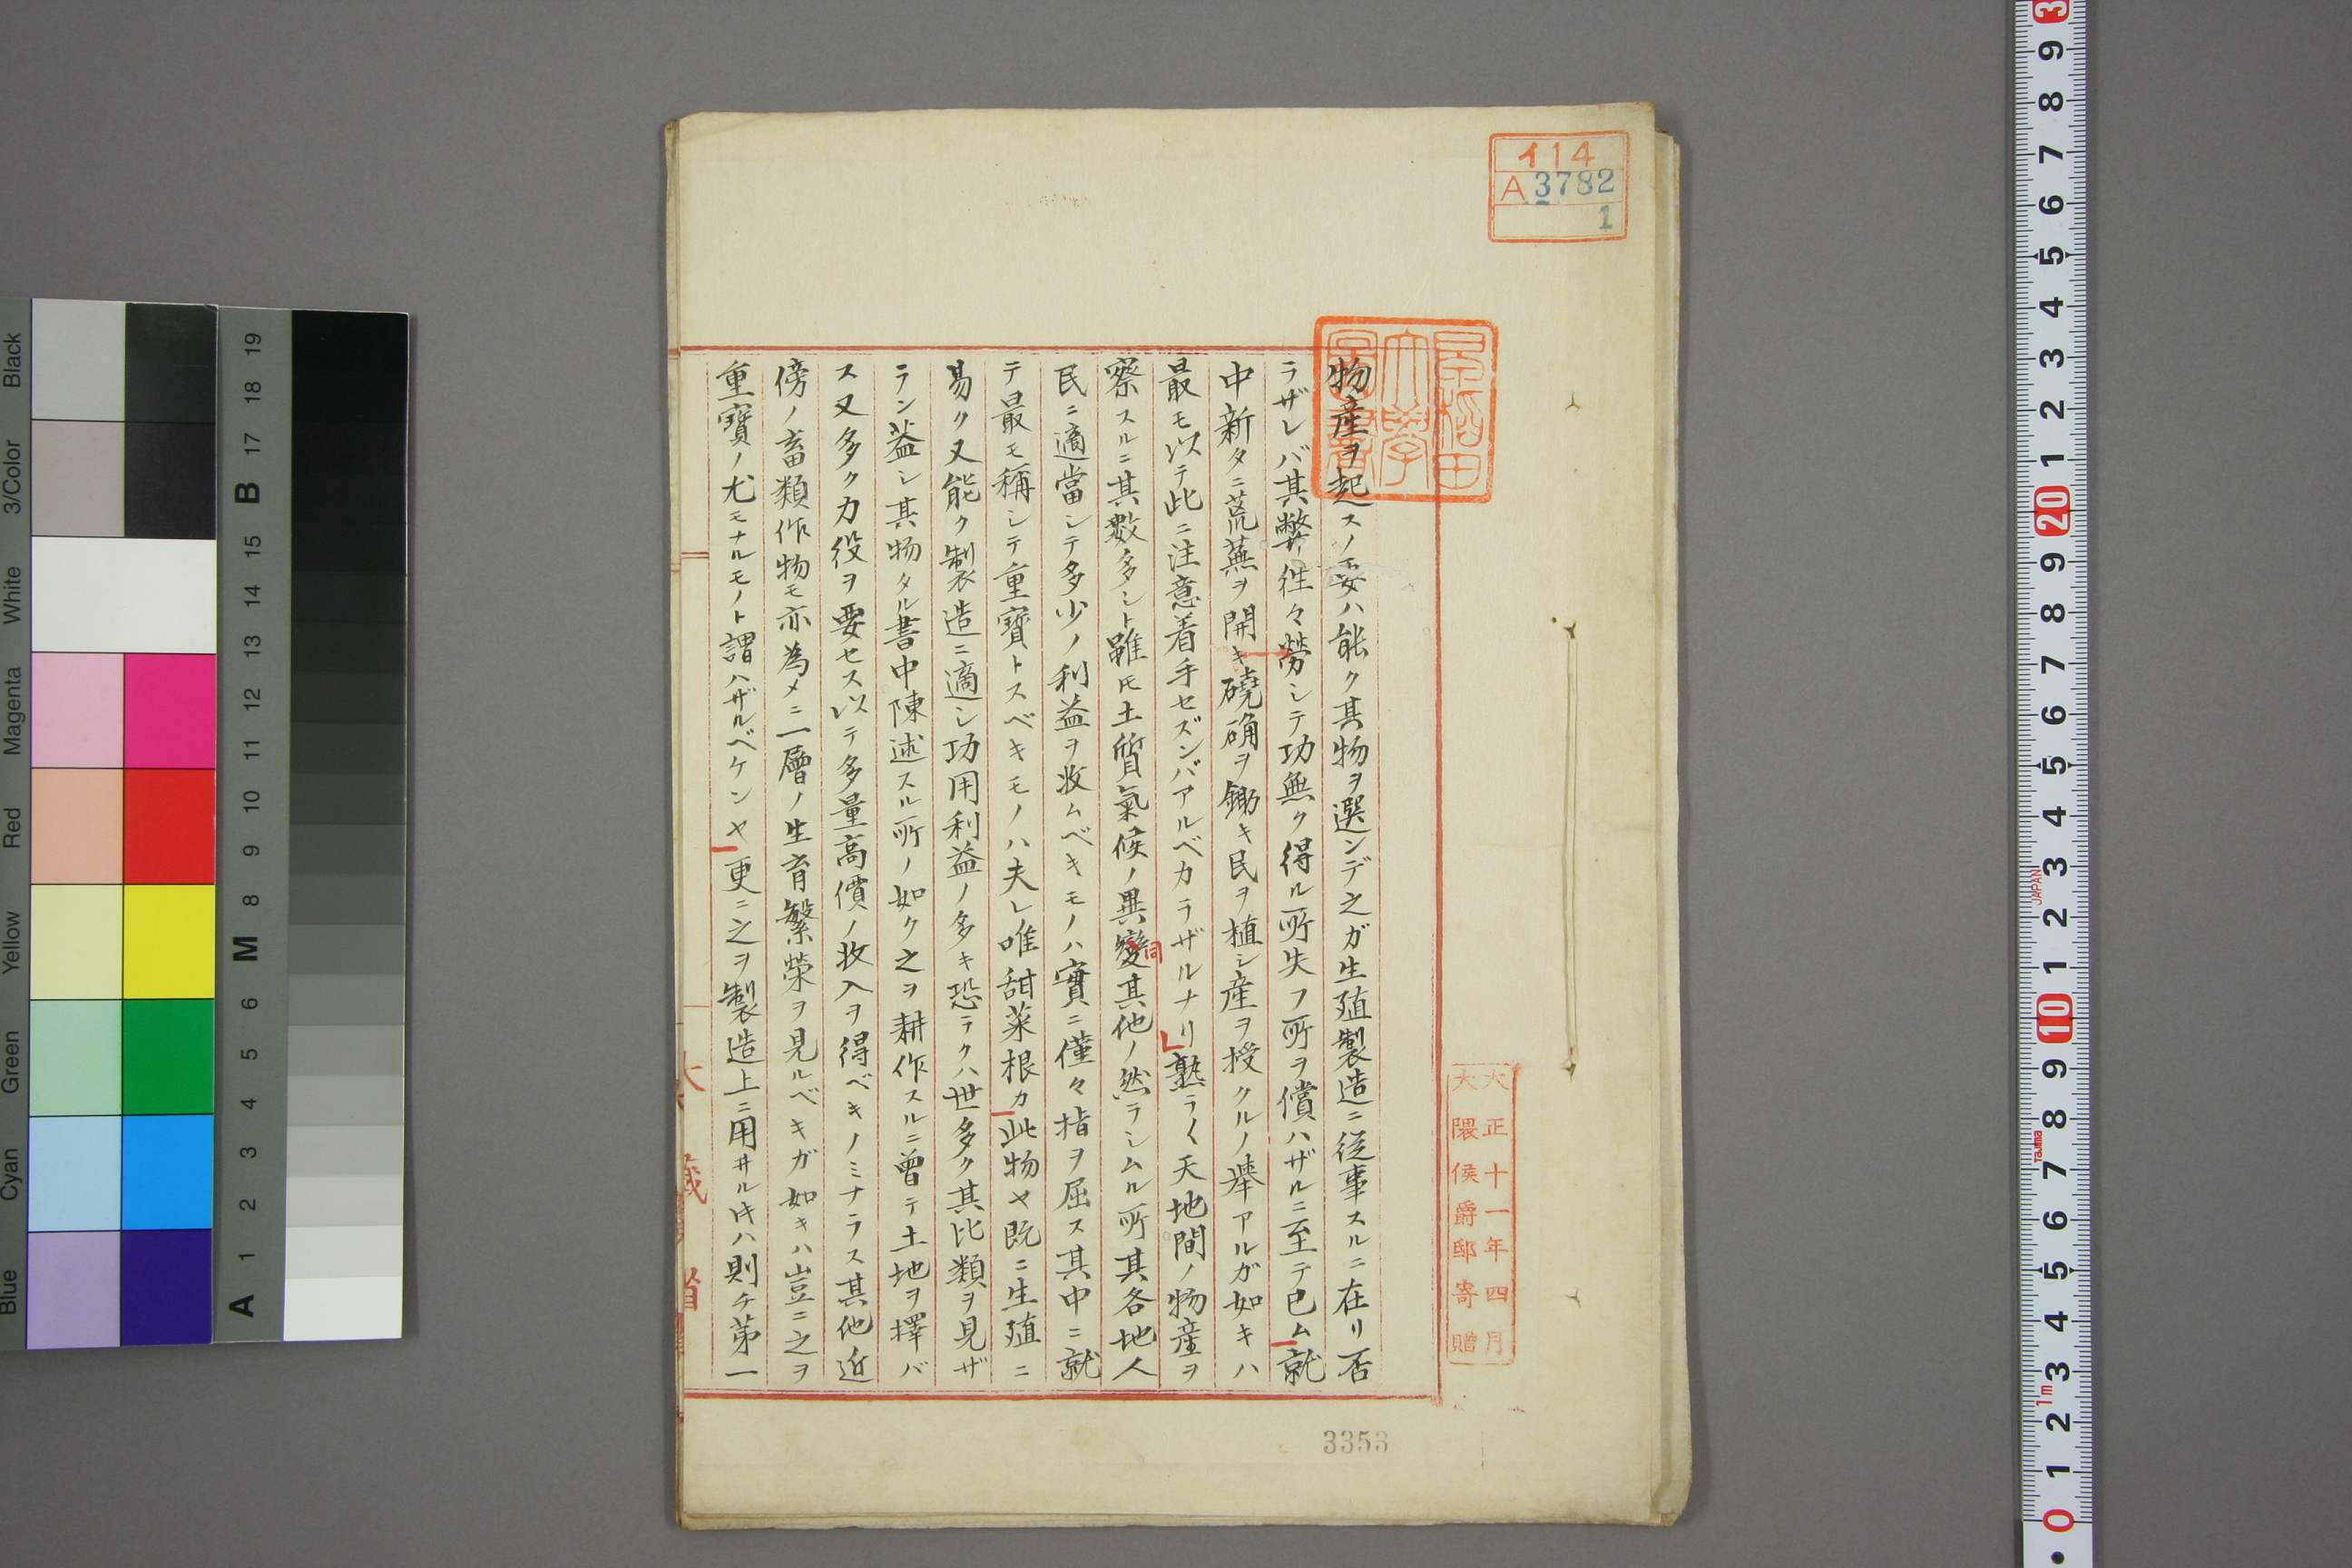 イ14
A 3782
1
早稲田
大學
圖書
物産ヲ起スノ要ハ能ク其物ヲ選ンデ之ガ生殖製造ニ従事スルニ在リ否
ラザレバ其弊往々勞シテ功無ク得ル所失フ所ヲ償ハザルニ至テ已ム就
中新タニ荒蕪ヲ開キ磽确ヲ鋤キ民ヲ植シ産ヲ授クルノ擧アルガ如キハ
最モ以テ此ニ注意着手セズンバアルベカラザルナリ熟ラ〱天地間ノ物産ヲ
察スルニ其數多シト雖𪜈土質氣候ノ異變同其他ノ然ラシムル所其各地人
民ニ適當シテ多少ノ利益ヲ收ムベキモノハ實ニ僅々指ヲ屈ス其中ニ就
テ最モ稱シテ重寶トスベキモノハ夫レ唯甜菜根カ此物ヤ既ニ生殖ニ
易ク又能ク製造ニ適シ功用利益ノ多キ恐テクハ世多ク其比類ヲ見ザ
ラン蓋シ其物タル書中陳述スル所ノ如ク之ヲ耕作スルニ曽テ土地ヲ擇バ
ス又多ク力役ヲ要セス以テ多量高價ノ收入ヲ得ベキノミナラス其他近
傍ノ畜類作物モ亦為メニ一層ノ生育繁榮ヲ見ルベキガ如キハ豈ニ之ヲ
重寶ノ尤モナルモノト謂ハザルベケンヤ更ニ之ヲ製造上ニ用井ルキハ則チ第一
大藏省
大正十一年四月
大隈侯爵邸寄贈
3353
Black
3/Color
White
Magenta
Red
Yellow
Green
Cyan
Blue
A 1 2 3 4 5 6 M 8 9 10 11 12 13 14 15 B 17 18 19
0 1 2 3 4 5 6 7 8 9 10 1 2 3 4 5 6 7 8 9 20 1 2 3 4 5 6 7 8 9 3
1m
Tajima
JAPAN